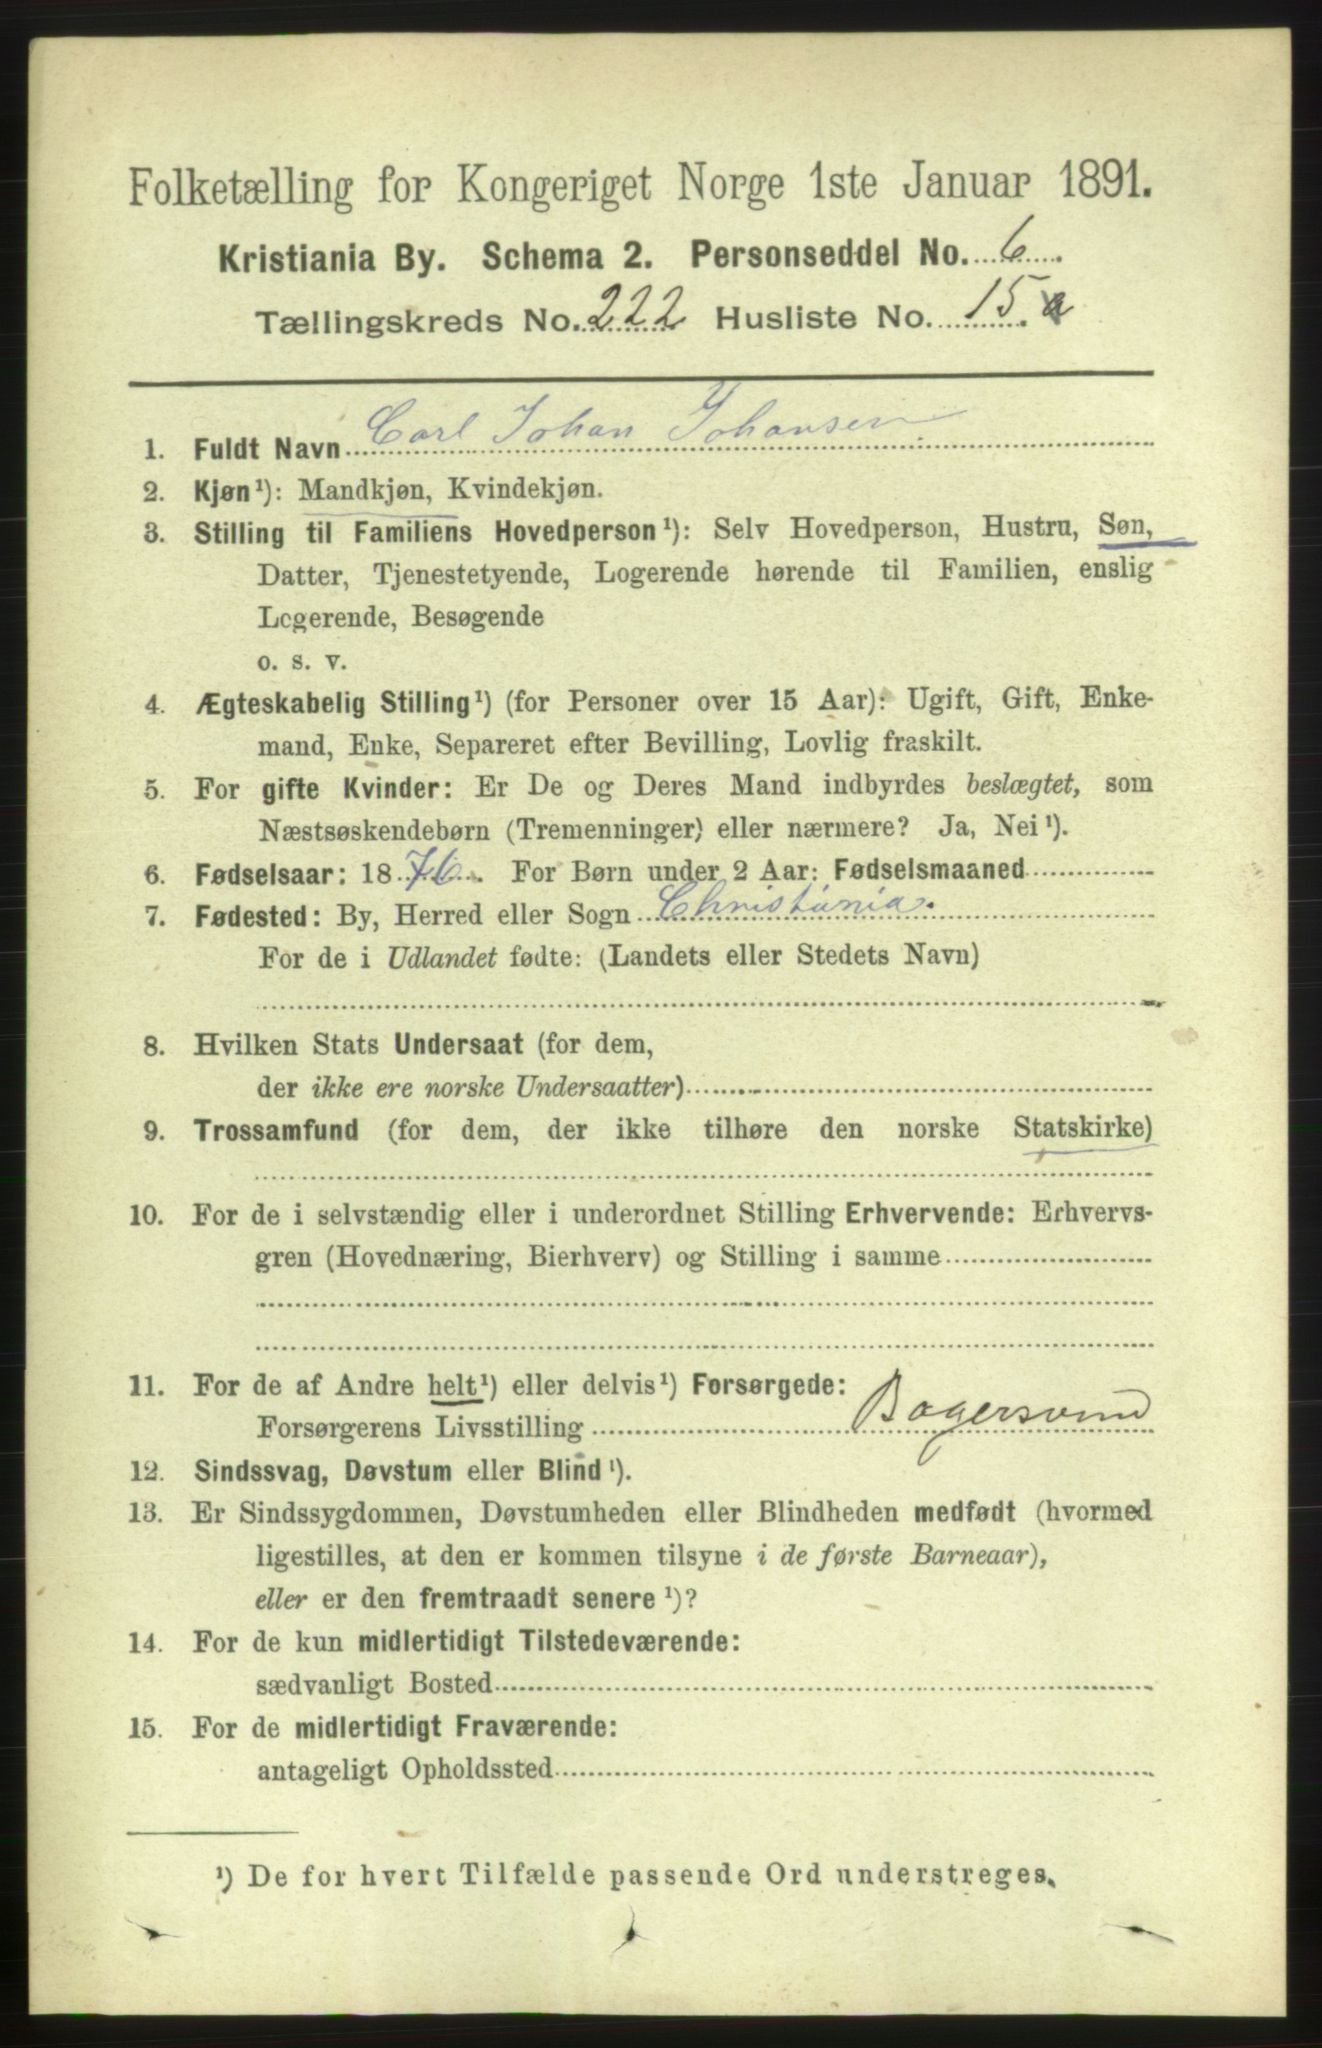 Folketælling for Kongeriget Norge 1ste Januar 1891.
Kristiania By. Schema 2. Personseddel No. 6.
Tællingskreds No. 222 Husliste No. 15.a
1. Fuldt Navn Carl Johan Johansen
2. Kjøn¹): Mandkjøn, Kvindekjøn.
3. Stilling til Familiens Hovedperson¹): Selv Hovedperson, Hustru, Søn,
Datter, Tjenestetyende, Logerende hørende til Familien, enslig
Logerende, Besøgende
o. s. v.
4. Ægteskabelig Stilling¹) (for Personer over 15 Aar): Ugift, Gift, Enke-
mand, Enke, Separeret efter Bevilling, Lovlig fraskilt.
5. For gifte Kvinder: Er De og Deres Mand indbyrdes beslægtet, som
Næstsøskendebørn (Tremenninger) eller nærmere? Ja, Nei¹).
6. Fødselsaar: 1876. For Børn under 2 Aar: Fødselsmaaned
7. Fødested: By, Herred eller Sogn Christiania.
For de i Udlandet fødte: (Landets eller Stedets Navn)
8. Hvilken Stats Undersaat (for dem,
der ikke ere norske Undersaatter)
9. Trossamfund (for dem, der ikke tilhøre den norske Statskirke)
10. For de i selvstændig eller i underordnet Stilling Erhvervende: Erhvervs-
gren (Hovednæring, Bierhverv) og Stilling i samme
11. For de af Andre helt¹) eller delvis¹) Forsørgede:
Forsørgerens Livsstilling Bagersvend
12. Sindssvag, Døvstum eller Blind¹).
13. Er Sindssygdommen, Døvstumheden eller Blindheden medfødt (hvormed
ligestilles, at den er kommen tilsyne i de første Barneaar),
eller er den fremtraadt senere¹)?
14. For de kun midlertidigt Tilstedeværende:
sædvanligt Bosted
15. For de midlertidigt Fraværende:
antageligt Opholdssted
¹) De for hvert Tilfælde passende Ord understreges.